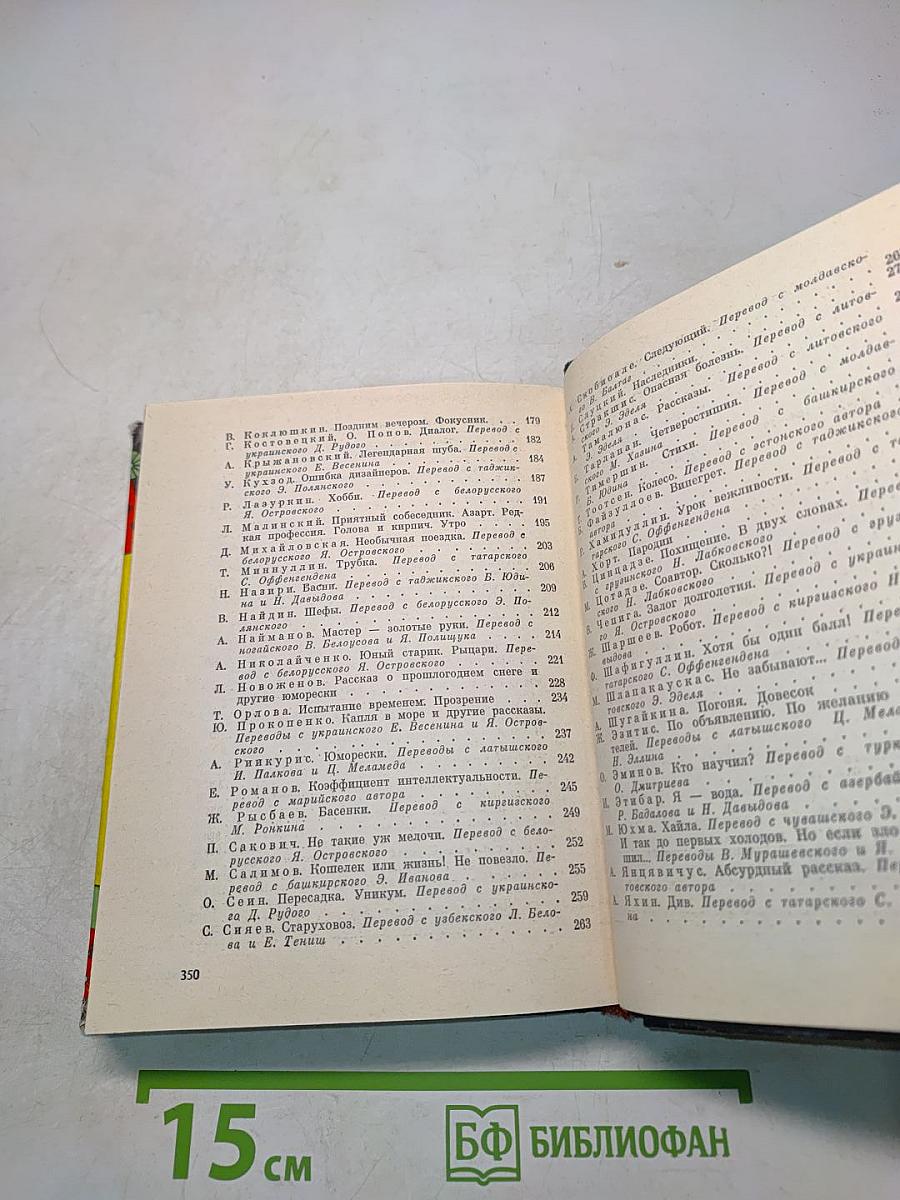 В. Коклюшкин. Поздним вечером. Фокусник. . . 179
Г. Костовецкий, О. Попов. Диалог. Перевод с
украинского Д. Рудого . . . . . . . . . 182
А. Крыжановский. Легендарная шуба. Перевод с
украинского Е. Весенина . . . . . . . . 184
У. Кухзод. Ошибка дизайнеров. Перевод с таджик-
ского Э. Полянского . . . . . . . . . 187
Р. Лазуркин. Хобби. Перевод с белорусского
Я. Островского . . . . . . . . . . 191
Л. Малинский. Приятный собеседник. Азарт. Ред-
кая профессия. Голова и кирпич. Утро . . . 195
Д. Михайловская. Необычная поездка. Перевод с
белорусского Я. Островского . . . . . . . 203
Т. Миннуллин. Трубка. Перевод с татарского
С. Оффенгендена . . . . . . . . . . 206
Н. Назири. Басни. Перевод с таджикского В. Юди-
на и Н. Давыдова . . . . . . . . . . 209
В. Найдин. Шефы. Перевод с белорусского Э. По-
лянского . . . . . . . . . . . . 212
А. Найманов. Мастер — золотые руки. Перевод с
ногайского В. Белоусова и Я. Полищука . . . 214
А. Николайченко. Юный старик. Рыцари. Пере-
вод с белорусского Я. Островского . . . . . 221
Л. Новоженов. Рассказ о прошлогоднем снеге и
другие юморески . . . . . . . . . . 228
Т. Орлова. Испытание временем. Прозрение . . . 234
Ю. Прокопенко. Капля в море и другие рассказы.
Переводы с украинского Е. Весенина и Я. Остров-
ского . . . . . . . . . . . . . 237
А. Ринкурис. Юморески. Переводы с латышского
И. Палкова и Ц. Меламеда . . . . . . . 242
Е. Романов. Коэффициент интеллектуальности. Пе-
ревод с марийского автора . . . . . . . 245
Ж. Рысбаев. Басенки. Перевод с киргизского
М. Ронкина . . . . . . . . . . . 249
П. Сакович. Не такие уж мелочи. Перевод с бело-
русского Я. Островского . . . . . . . . 252
М. Салимов. Кошелек или жизнь! Не повезло. Пе-
ревод с башкирского Э. Иванова . . . . . . 255
О. Сеин. Пересадка. Уникум. Перевод с украинско-
го Д. Рудого . . . . . . . . . . . 259
С. Сияев. Старуховоз. Перевод с узбекского Л. Бело-
ва и Е. Тениш . . . . . . . . . . . 263
350
Скобиоале. Следующий. Перевод с молдавско-
го В. Балтаг
Слуцкий. Наследники.
Стракшис. Опасная болезнь. Перевод с литов-
ского Э. Эделя
Тамалюнас. Рассказы. Перевод с литовского
Э. Эделя
Тарлапан. Четверостишия. Перевод с молдав-
ского М. Хазина
Тимершин. Стихи. Перевод с башкирского
В. Юдина
Тоотсен. Колесо. Перевод с эстонского автора
Файзуллоев. Винегрет. Перевод с таджикского
автора
Хамидуллин. Урок вежливости. Перевод с
тарского С. Оффенгендена
А. Хорт. Пародии
Цинцадзе. Похищение. В двух словах.
с грузинского Н. Лабковского
Цотадзе. Соавтор. Сколько?! Перевод с
ского Н. Лабковского
В. Чепига. Залог долголетия. Перевод с
го Я. Островского
Ж. Шаршеев. Робот. Перевод с киргизского Н.
выдова
О. Шафигуллин. Хотя бы один балл!
татарского С. Оффенгендена
М. Шлапакаускас. Не забывают... Перевод
товского Э. Эделя
А. Шугайкина. Погоня. Довесок
Ж. Эзитис. По объявлению. По желанию
телей. Переводы с латышского Ц.
Н. Эллина
О. Эминов. Кто научил? Перевод с
О. Дмитриева
И. Этибар. Я — вода. Перевод с
Р. Бадалова и Н. Давыдова
М. Юхма. Хайла. Перевод с чувашского Э.
И так до первых холодов. Но если
шил... Переводы В. Мурашевского и Я.
А. Янцявичус. Абсурдный рассказ.
товского автора
А. Яхин. Див. Перевод с татарского С.
на
15 см
БФ БИБЛИОФАН